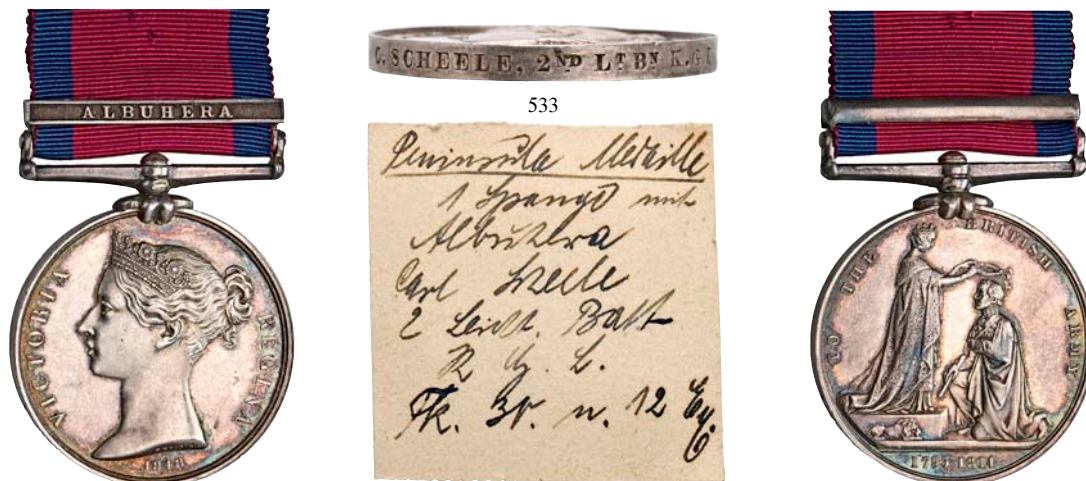 ALBUHERA
VICTORIA REGINA
C. SCHEELE, 2ND LT BN K.G.
533
Peninsula Medaille
1 Spange mit
Albuhera
Carl Scheele
2 Leicht. Batt
K. G. L.
12
TO THE BRITISH ARMY
1793-1814